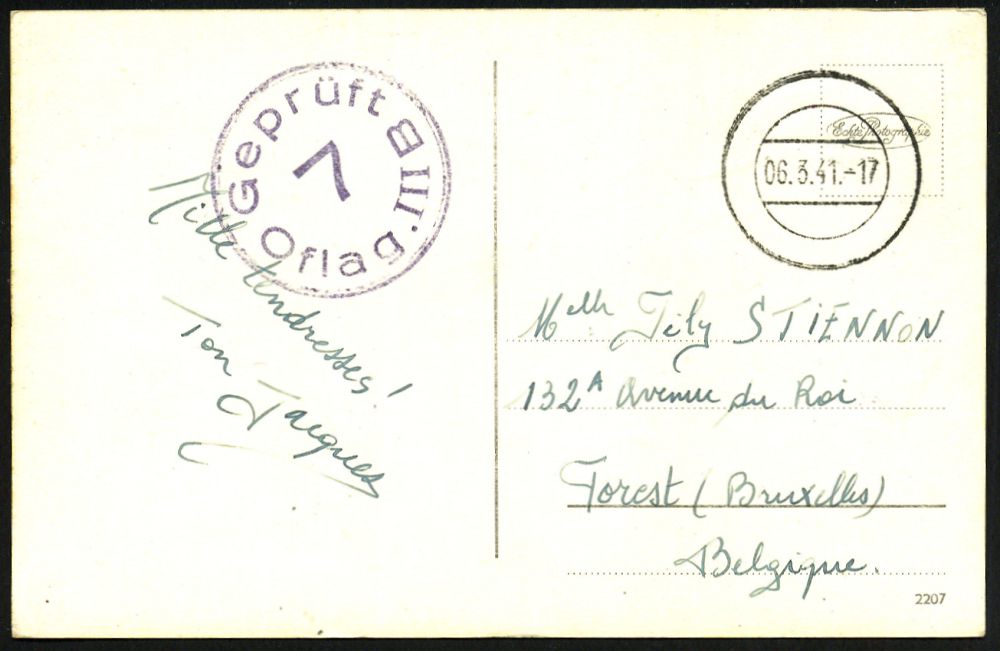 Geprüft
7
Oflag. III B
Mille tendresses!
Ton Jacques
Echte Photographie
06.3.41.-17
Melle Jily STIENNON
132A Avenue du Roi
Forest (Bruxelles)
Belgique.
2207